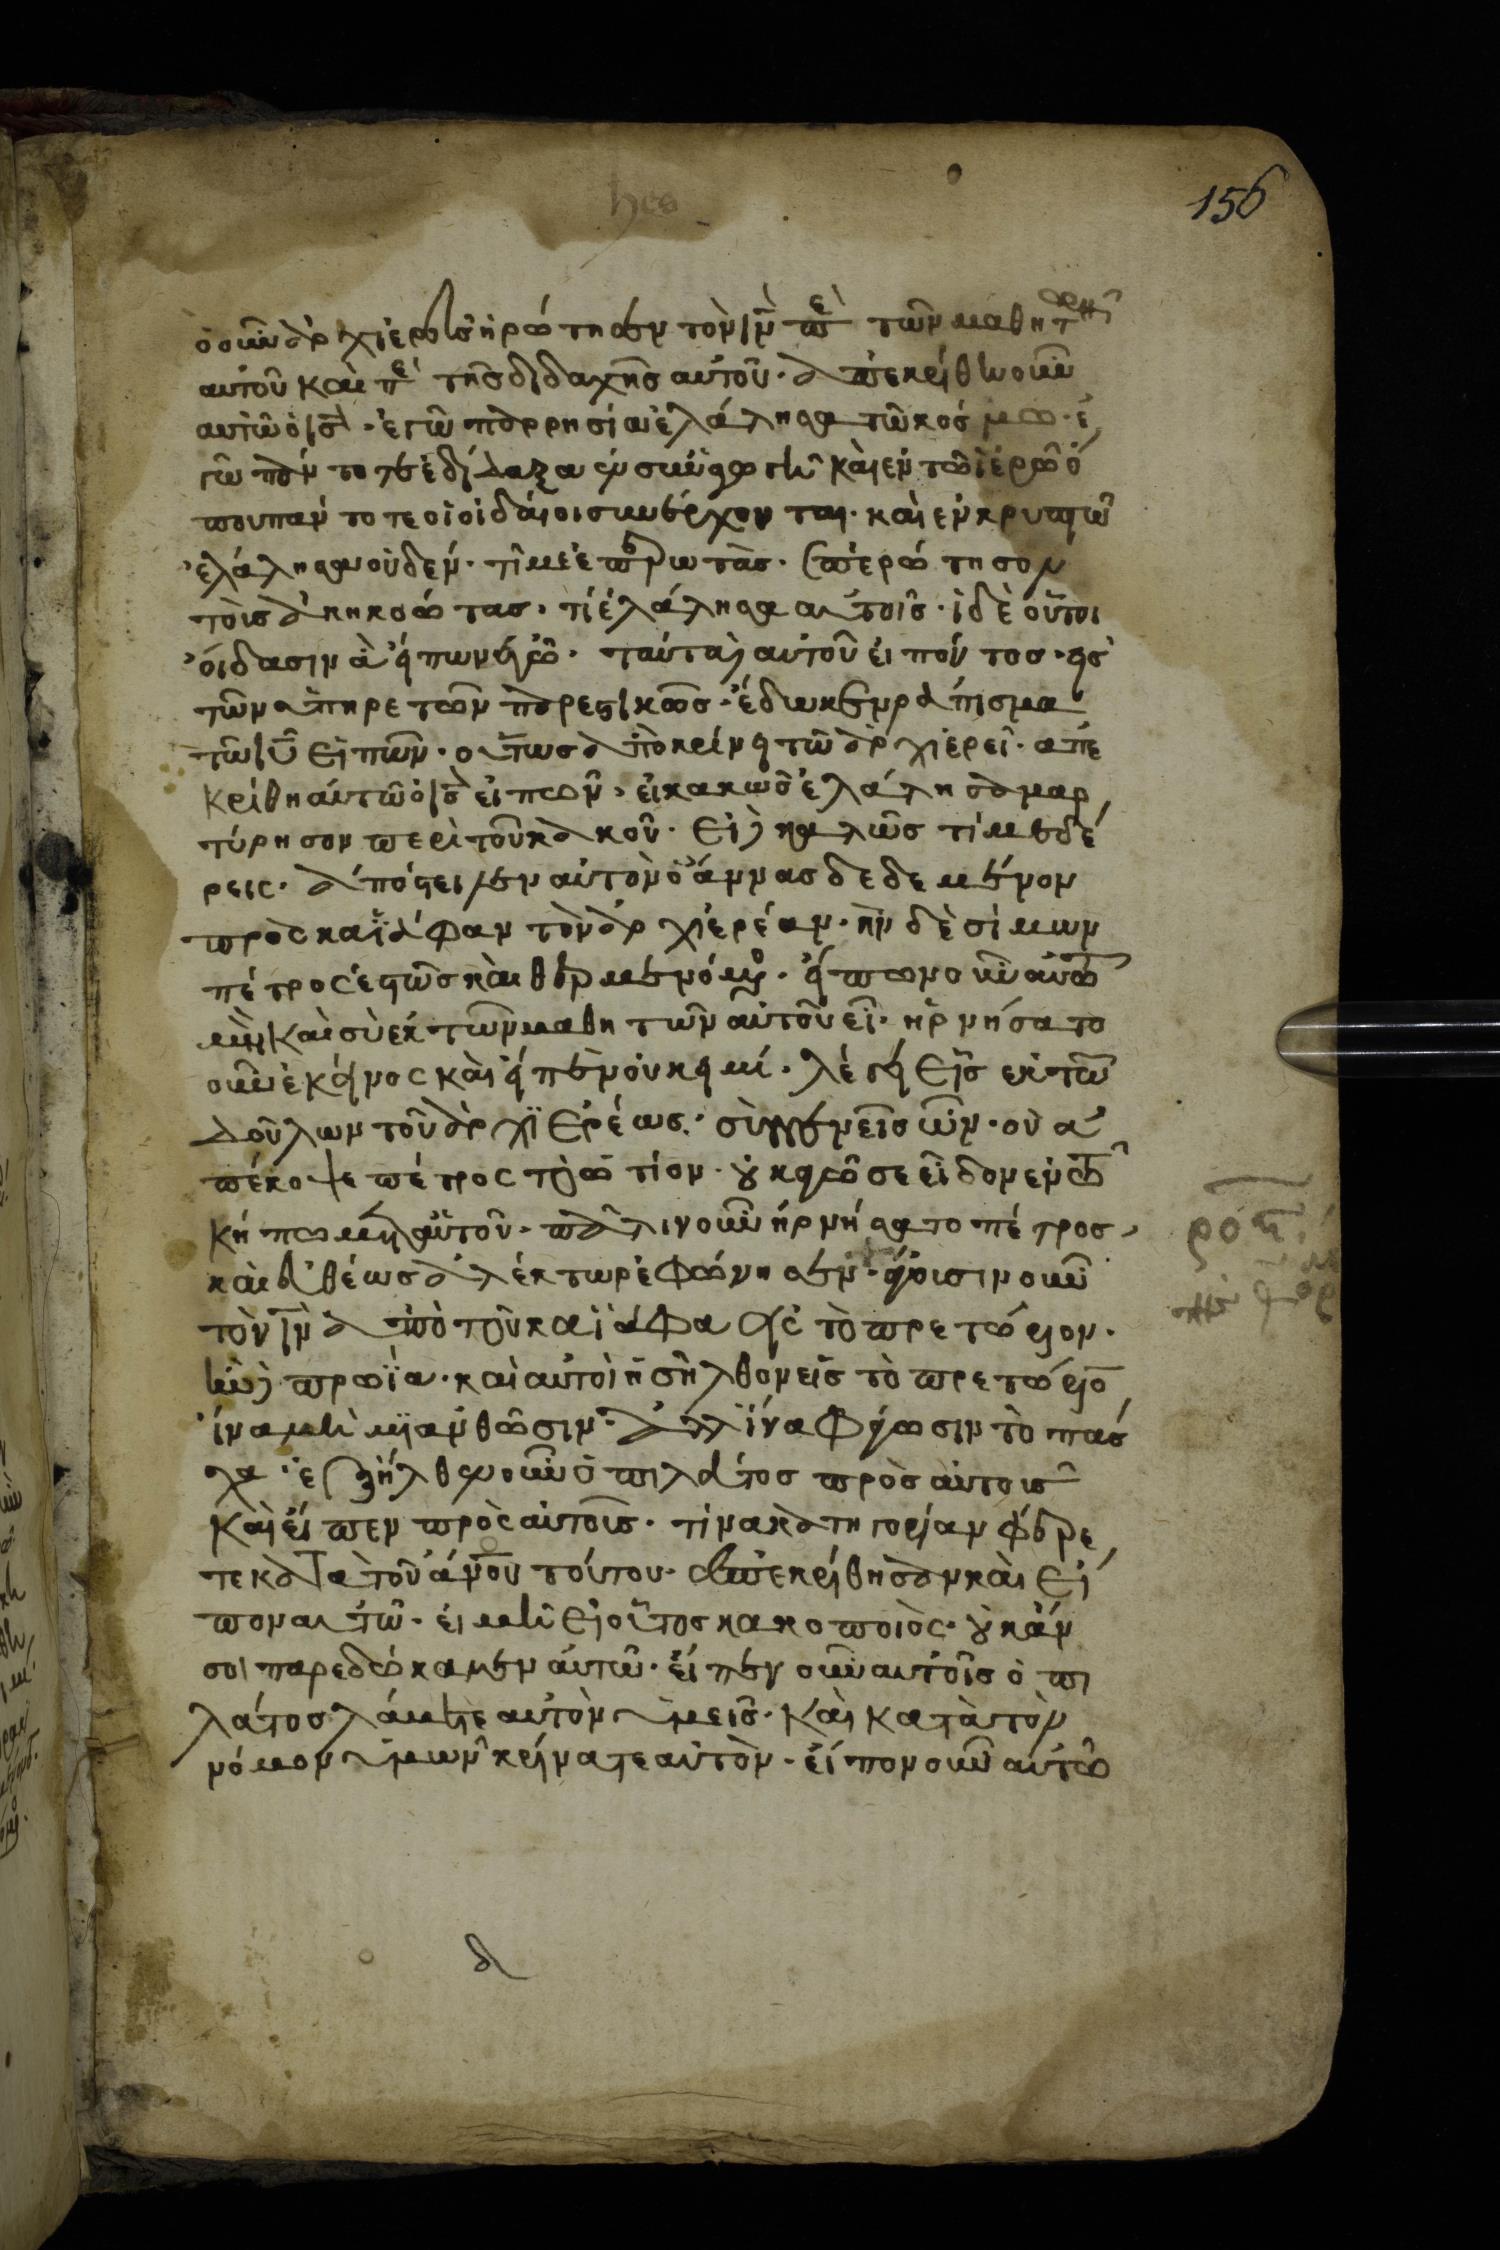 156
ὁ οὖν ἀρχιερεὺς ἠρώτησεν τὸν ιν̅ περὶ τῶν μαθητῶν
αὐτοῦ καὶ περὶ τῆς διδαχῆς αὐτοῦ· ἀπεκρίθη οὖν
αὐτῶ ὁ ις̅· ἐγὼ παρρησία ἐλάλησα τῶ κόσμω· ἐ
γὼ πάντοτε ἐδίδαξα ἐν συναγωγῆ καὶ ἐν τῶ ἱερῶ ὅ
που πάντοτε οἱ ἰουδαῖοι συνέρχονται· καὶ ἐν κρυπτῶ
ἐλάλησα οὐδέν· τί με ἐπερωτᾶς· ἐπερώτησον
τοὺς ἀκηκοότας· τί ἐλάλησα αὐτοῖς· ἰδὲ οὗτοι
οἴδασιν ἃ εἶπων ἐγώ· ταῦτα αὐτοῦ εἰπόντος· εἷς
τῶν ὑπηρετῶν παρεστικῶς· ἔδωκεν ράπισμα
τῶ ιυ̅ εἰπῶν· οὕτως ἀποκρίνη τῶ ἀρχιερεῖ· ἀπε
κρίθη αὐτῶ ὁ ις̅ εἰπῶν· εἰ κακῶς ἐλάλησα μαρ
τύρησον περὶ τοῦ κακοῦ· εἰ καλῶς τί με δέ
ρεις· ἀπέστειλεν αὐτὸν ὁ ἄννας δεδεμένον
πρὸς καϊάφαν τὸν ἀρχιερέαν· ἦν δὲ σίμων
πέτρος ἑστὼς καὶ θερμενόμενος· εἶπων οὖν αὐτῶ
μὴ καὶ σὺ ἐκ τῶν μαθητῶν αὐτοῦ εἶ· ἠρνήσατο
οὖν ἐκεῖνος καὶ εἶπεν οὐκ εἰμί· λέγει εἷς ἐκ τῶν
δούλων τοῦ ἀρχϊερέως· συγγενεῖς ὢν· οὗ ἀ
πέκοψε πέτρος τὸ ὠτίον· οὐκ ἐγώ σε εἶδον ἐν τῶ
κήπω μετ' αὐτοῦ· πάλιν οὖν ἠρνήσατο πέτρος
καὶ εὐθέως ἀλέκτωρ ἐφώνησεν· ἄγουσιν οὖν
τὸν ιν̅ ἀπὸ τοῦ καϊάφα εἰς τὸ πρετώριον·
ἦν δὲ πρωΐα· καὶ αὐτοὶ οὐκ εἰσῆλθον εἰς τὸ πρετώριον
ἵνα μὴ μϊανθῶσιν· ἀλλ' ἵνα φάγωσιν τὸ πάσ
χα· ἐξῆλθεν οὖν ὁ πιλάτος πρὸς αὐτοὺς
καὶ εἶπεν πρὸς αὐτοῖς· τίνα κατηγορίαν φέρε
τε κατὰ τοῦ αν̅ου τούτου· ἀπεκρίθησαν καὶ εἶ
πον αὐτῶ· εἰ μὴ εἶ οὗτος κακοποιὸς· οὐκ ἄν
σοι παρεδώκαμεν αὐτῶ· εἶπεν οὖν αὐτοῖς ὁ πι
λάτος λάβετε αὐτὸν ὑμεῖς· καὶ κατὰ τὸν
νόμον ὑμῶν κρίνατε αὐτὸν· εἶπον οὖν αὐτῶ